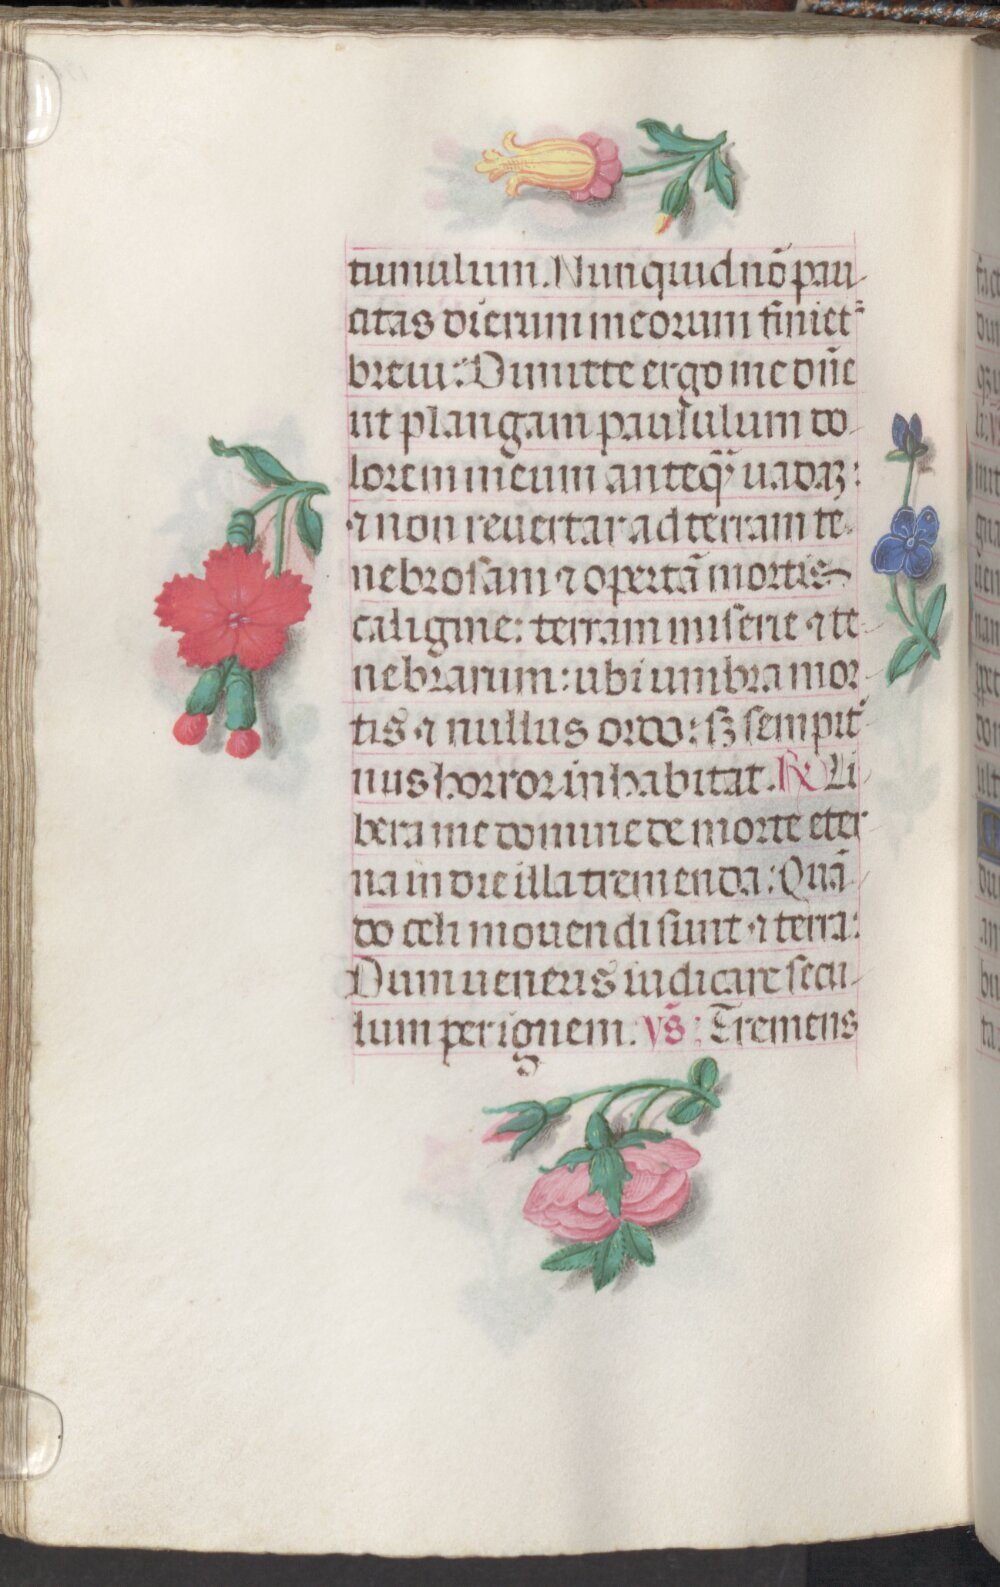 tumulum. Nunquid nō pau
citas dierum meorum finiet᷑
breui: Dimitte ergo me dn̄e
ut plangam paululum do
lorem meum anteq̄ uadaꝫ:
⁊ non reuertar ad terram te
nebrosam ⁊ opertā mortis
caligine: terram miserie ⁊ te
nebrarum: ubi umbra mor
tis ⁊ nullus ordo: sꝫ sempit̄
nus horror inhabitat. ℟ Li
bera me domine de morte eter
na in die illa tremenda: Quā
do celi mouendi sunt ⁊ terra:
Dum ueneris iudicare secu
lum per ignem. Vs̄: Tremens